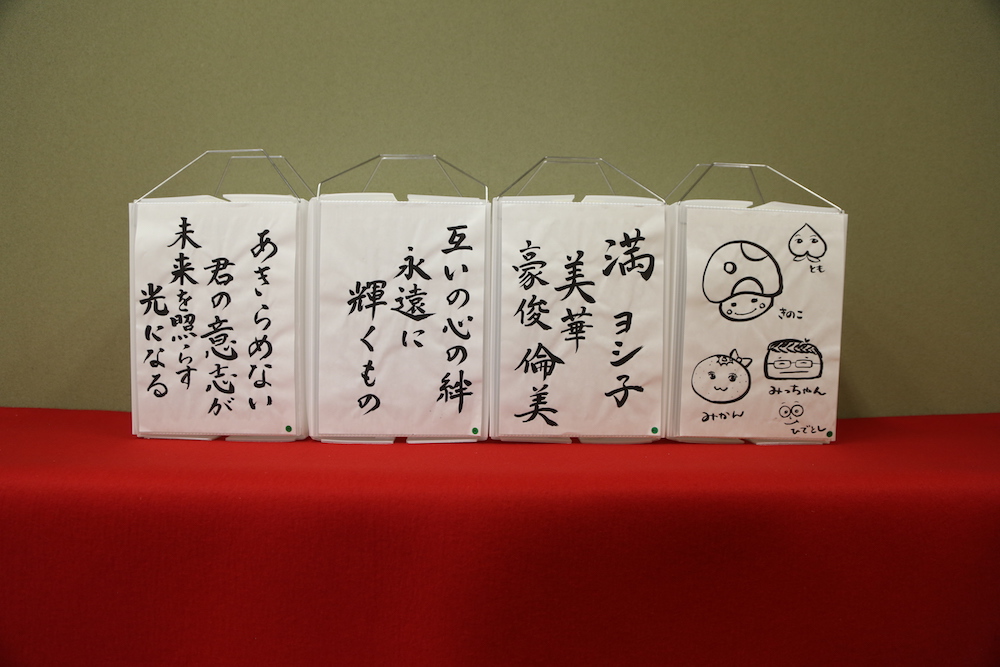 あきらめない
君の意志が
未来を照らす
光になる
互いの心の絆
永遠に
輝くもの
満 ヨシ子
美華
豪俊 倫美
とも
きのこ
みっちゃん
みかん
ひでとし